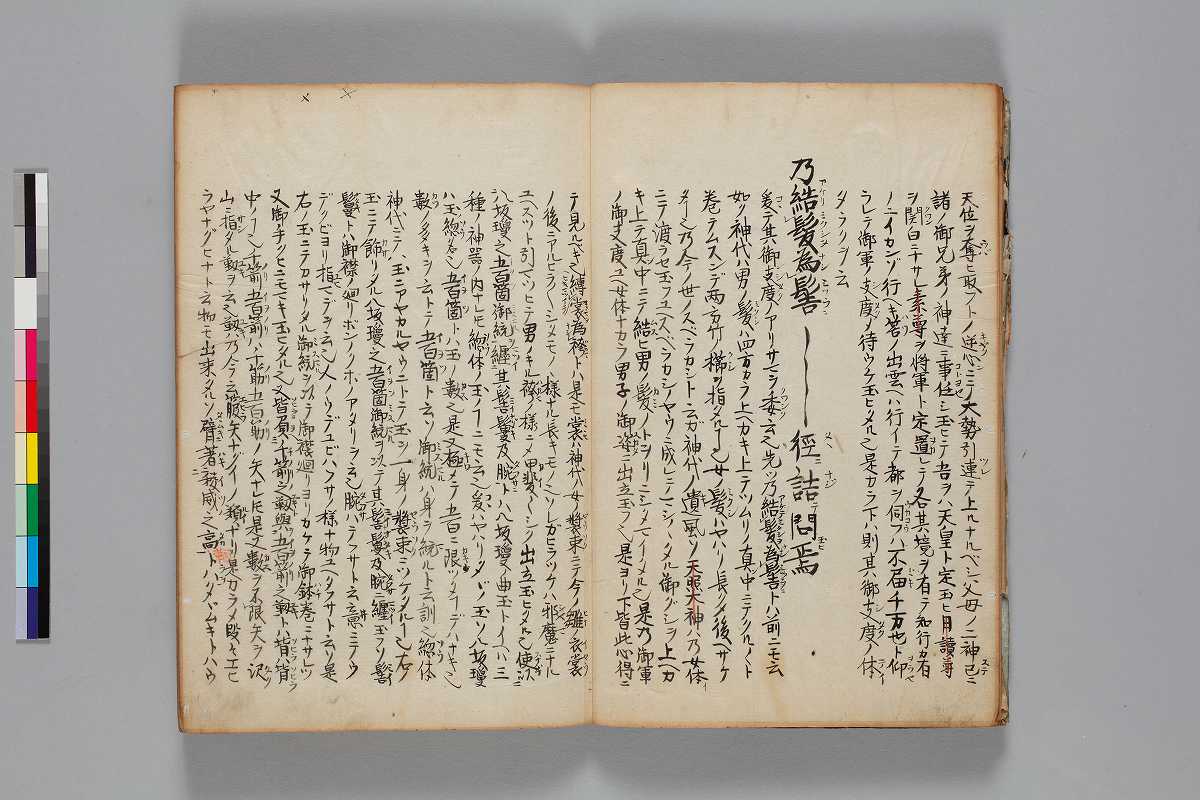 天位ヲ奪ヒ取フトノ逆心ニテ大勢引連テ上ルナルベシ父母ノ二神已ニ
諸ノ御兄弟ノ神達ニ事任シ玉ヒテ吾ヲハ天皇ト定玉ヒ月讀尊
ヲ関白ニナサレ素尊ヲ将軍ト定置レテ各其境ヲ有テ知行カ有
ノニイカンゾ行ヘキ若ノ出雲ヘハ行イデ都ヲ伺フハ不届千万也ト仰
ラレテ御軍ノ支度ノ待ウケ玉ヒタル之是カラ下ハ則其御支度ノ体
タラクゾ云
乃結髮為髻 ─── 徑詰問焉
爰テ其御支度ノアリサマシノ委ク云之先乃結髮為髻トハ前ニモ云
如ク神代ハ男ノ髮ハ四方カラ上ヘカキ上テツムリノ真中ニテクルクルト
巻テムスンデ両方竹ノ櫛ヲ指タル之女ノ髮ハヤハリ長クメ後ヘサケ
之乃今ノ世ノスベラカシト云ガ神代ノ遺風ソ天照大神ハ乃女体
ニテ渡ラセ玉フユヘスベラカシノヤウニ成シテコハシハタル御グシヲ上ヘカ
キ上テ真中ニテ結ヒ男ノ髮ノトヲリニシメモイメル之是乃御軍
ノ御支度ユヘ女体ナカラ男子ノ御姿ニ出立玉フ之是ヨリ下皆此心得ニ
テ見ルベキ之縛裳為袴トハ是モ裳ハ神代ハ女ノ装束ニテ今ノ雛ノ衣裳
ノ後ニアルヒラヒラシメモノノ様ナル長キモノ之レガヒラツケハ邪魔ニナル
ユヘスツト引マツヒテ男ノキル袴ノ様ニメ甲斐々シク出立玉ヒタル之便以
八坂瓊之五百箇御統纏其髻鬘及腕トハ八坂瓊ハ曲玉トイハハ三
種ノ神器ノ内ナレモ総体ノ玉ノ一ニモ云之爰ハヤハリタヾノ玉ソ八坂瓊
ハ玉ノ惣名之五百箇トハ玉ノ数之是又極メテ五百ニ限ツメイデハナキ之
数ノタヽキヲ云トテ五百箇ト云ソ御統ハ身ヲ統ルト云訓之総体
神代ニテハ玉ニアヤカルヤウニトテ玉ヲ一身ノ装束ニツケタル之右ノ
玉ニテ飾リタル八坂瓊之五百箇御統ヲ以テ其髻鬘及腕ニ纏玉フソ髻
鬘トハ御襟ノ廻リボンノクホノアタリヲ云之腕ハテフサト云意ニテウ
デクビヨリ指マデヲ云之人ノウデユビハフサノ様ナ物ユヘタフサト云ソ是
右ノ玉ニテカサリタル御統ヲ以テ御襟廻リヨリカケテ御鉢巻ニナサレツ
又御手クヒニモマキ玉ヒタル之又皆負千箭之靫與五百箭之靫トハ背ハ背
中ノ之千箭五百箭ハ千筋五百筋ノ矢ナレモ是ヲ数ヲ不限矢ヲ沢
山ニ指タル靫ヲ云之靫ハ乃今ニ云箙矢ナグイノ類ナリ是カラメ殴キエヒ
ラヤナグヒナト云物モ出来タルソ臂著稜威之高鞆トハタヾムキトハウ